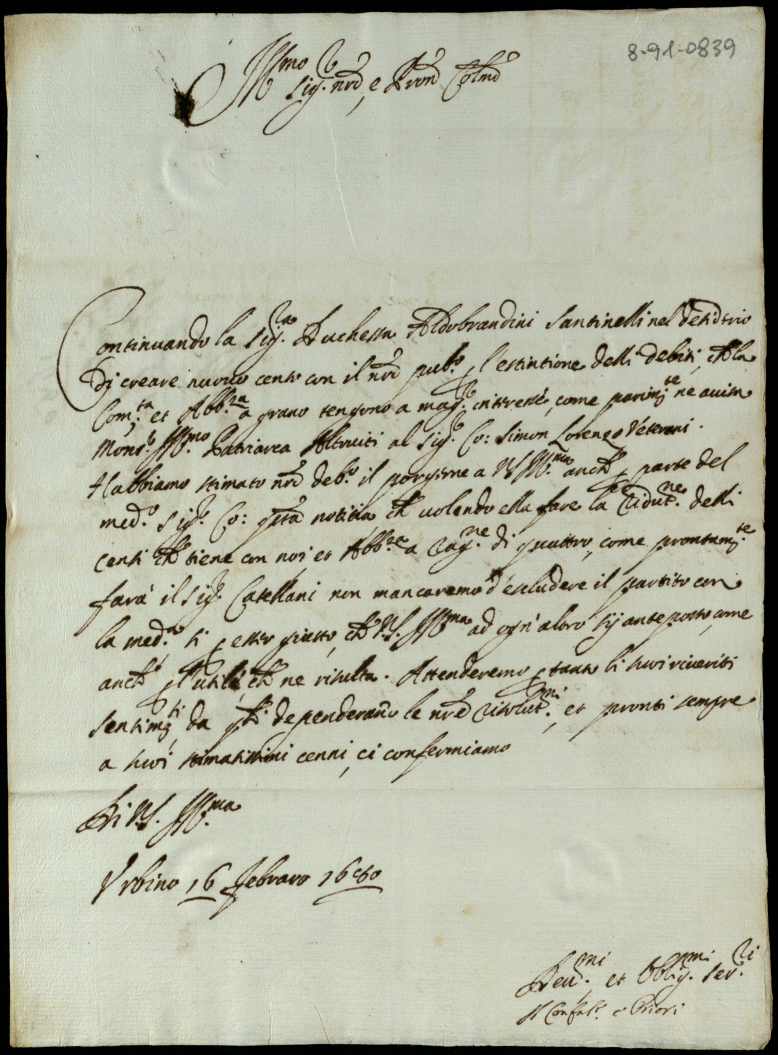 8-91-0839
Ill.mo Sig.r nro e Pron Col.mo
Continuando la Sig.ra Duchessa Aldobrandini Santinelli nel desiderio
di creare nuovo censo con il nro pub.o p l'estintione delli debiti, ch la
Com.tà et Abb.za a grano tengono a mag.r interesse, come parim.te ne avisa
Mons.r Ill.mo Patriarca Altoviti al Sig.r Co: Simon Lorenzo Veterani.
Habbiamo stimato nro deb.o il porgerne a V.S. Ill.ma anch p parte del
med.o Sig.r Co: q.sta notitia ch volendo ella fare la ridut.ne delli
censi ch tiene con noi et Abb.za a rag.ne di quattro, come prontam.te
farà il Sig.r Catellani non mancaremo d'escludere il partito con
la med.a si p esser giusto, ch V.S. Ill.ma ad ogn'altro sij anteposto, come
anch p l'utile, ch ne risulta. Attenderemo p tanto li suoi riveriti
sentim.ti da q.li dependeranno le nre risolut.ni, et pronti sempre
a suoi stimatissimi cenni, ci confermiamo
Di V.S. Ill.ma
Urbino 16 Febraro 1680
Dev.mi et Obblig.mi Ser.ri
Il Confal.re e Priori